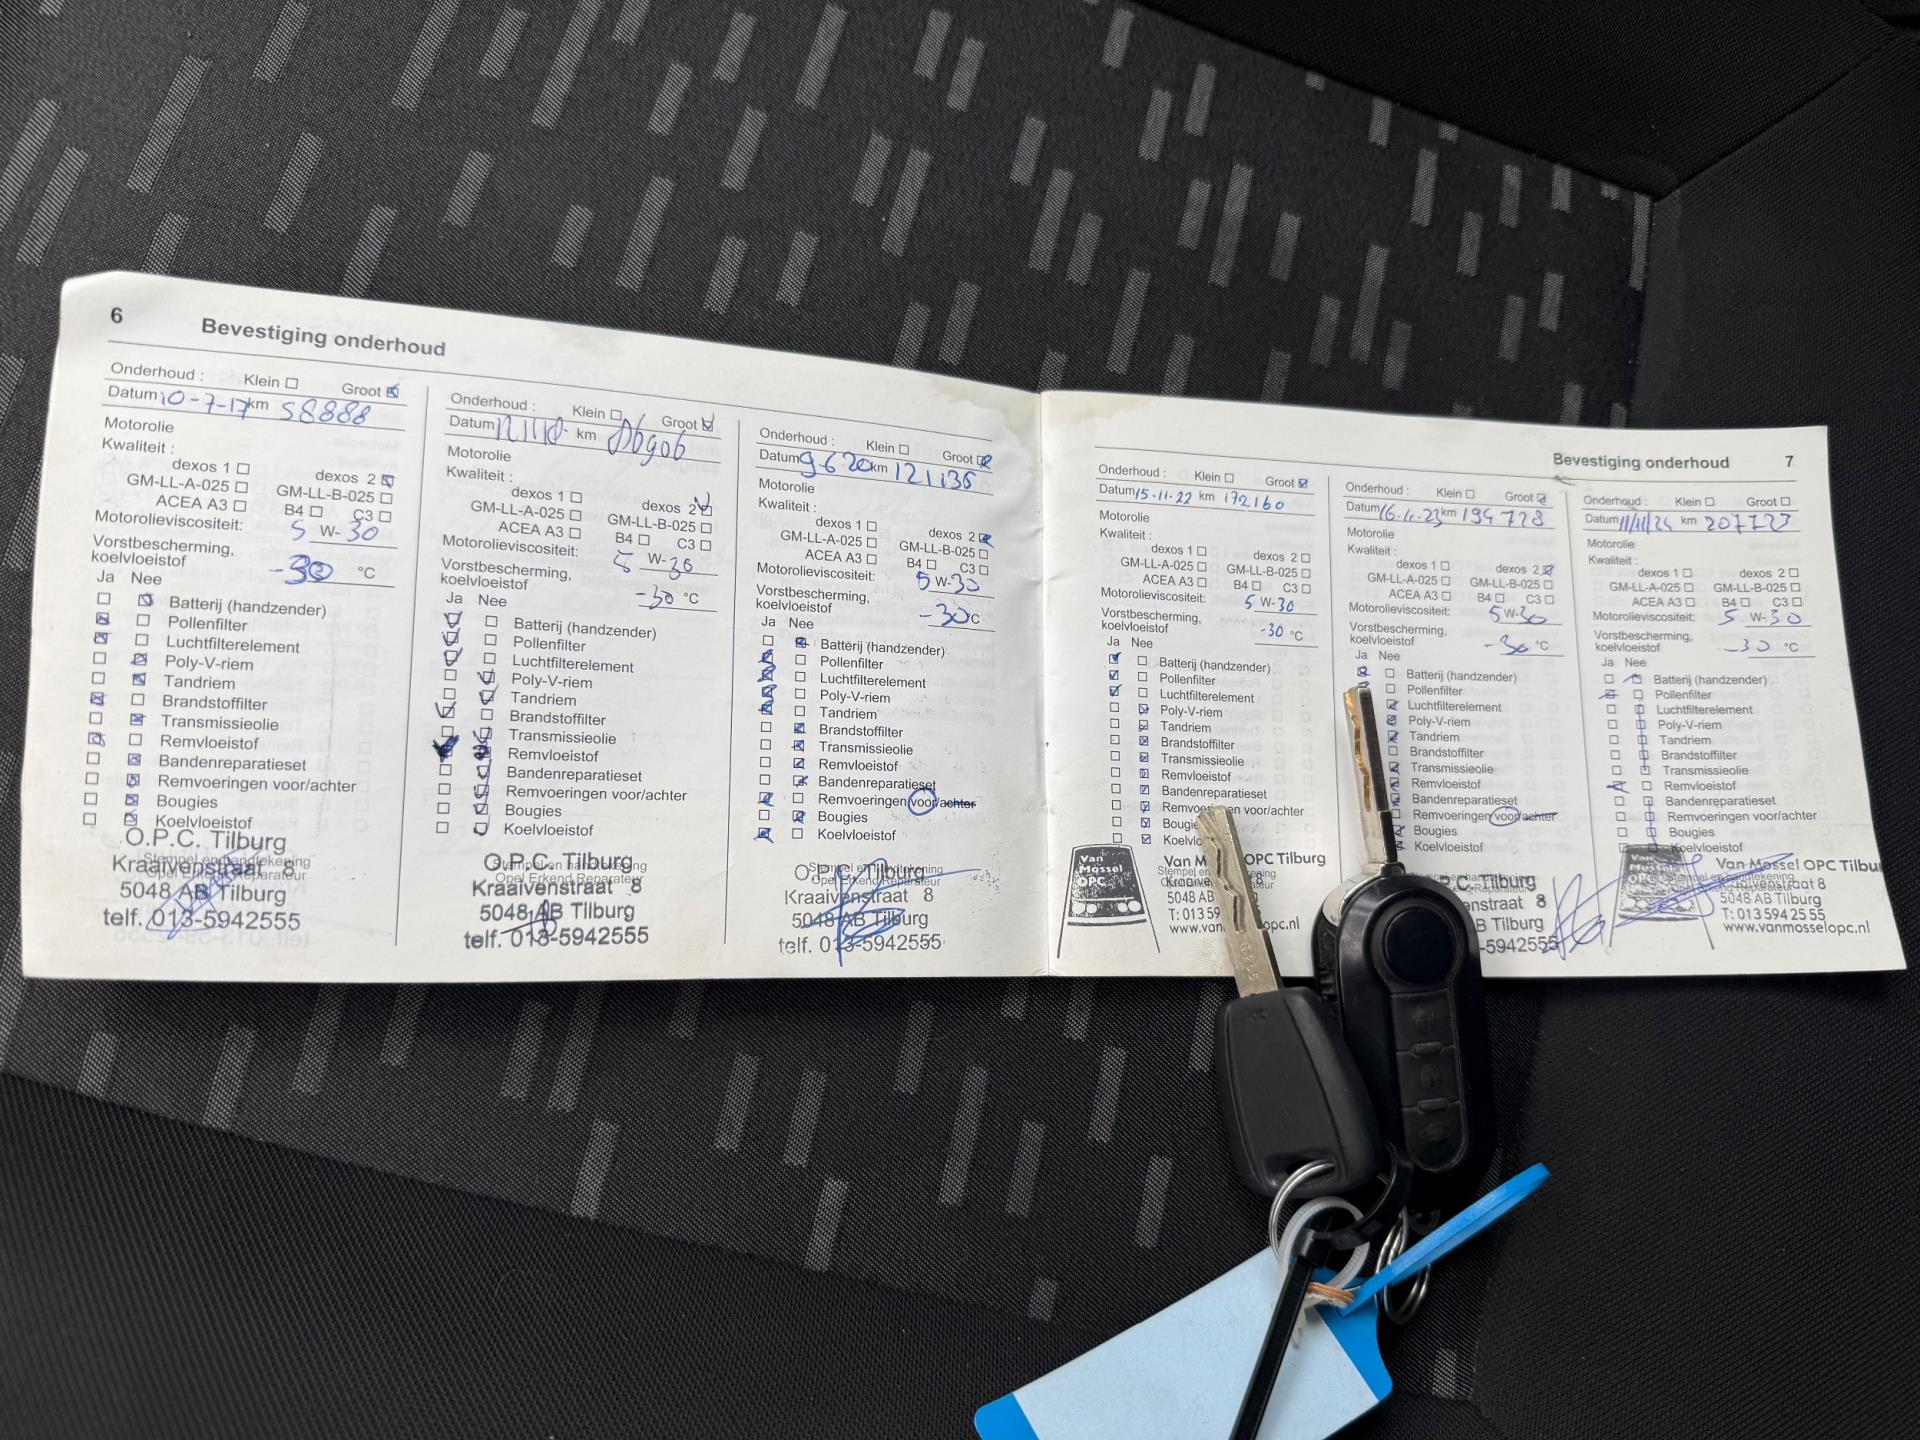 6
Bevestiging onderhoud
Onderhoud : Klein Groot
Datum 10-7-17 km 58888
Motorolie
Kwaliteit :
dexos 1 dexos 2
GM-LL-A-025 GM-LL-B-025
ACEA A3 B4 C3
Motorolieviscositeit: 5 W- 30
Vorstbescherming,
koelvloeistof -30 °C
Ja Nee
Batterij (handzender)
Pollenfilter
Luchtfilterelement
Poly-V-riem
Tandriem
Brandstoffilter
Transmissieolie
Remvloeistof
Bandenreparatieset
Remvoeringen voor/achter
Bougies
Koelvloeistof
Stempel en handtekening
O.P.C. Tilburg
Kraaivenstraat 8
5048 AB Tilburg
telf. 013-5942555
Onderhoud : Klein Groot
Datum km
Motorolie
Kwaliteit :
dexos 1 dexos 2
GM-LL-A-025 GM-LL-B-025
ACEA A3 B4 C3
Motorolieviscositeit: 5 W-30
Vorstbescherming,
koelvloeistof -30 °C
Ja Nee
Batterij (handzender)
Pollenfilter
Luchtfilterelement
Poly-V-riem
Tandriem
Brandstoffilter
Transmissieolie
Remvloeistof
Bandenreparatieset
Remvoeringen voor/achter
Bougies
Koelvloeistof
Stempel en handtekening
Opel Erkend Reparateur
O.P.C. Tilburg
Kraaivenstraat 8
5048 AB Tilburg
telf. 013-5942555
Onderhoud : Klein Groot
Datum 9-6-20 km 121136
Motorolie
Kwaliteit :
dexos 1 dexos 2
GM-LL-A-025 GM-LL-B-025
ACEA A3 B4 C3
Motorolieviscositeit: 5 W-30
Vorstbescherming,
koelvloeistof -30 °C
Ja Nee
Batterij (handzender)
Pollenfilter
Luchtfilterelement
Poly-V-riem
Tandriem
Brandstoffilter
Transmissieolie
Remvloeistof
Bandenreparatieset
Remvoeringen voor/achter
Bougies
Koelvloeistof
Stempel en handtekening
Opel Erkend Reparateur
Tilburg
Kraaivenstraat 8
5048 AB Tilburg
telf. 013-5942555
Bevestiging onderhoud 7
Onderhoud : Klein Groot
Datum 15-11-22 km 172160
Motorolie
Kwaliteit :
dexos 1 dexos 2
GM-LL-A-025 GM-LL-B-025
ACEA A3 B4 C3
Motorolieviscositeit: 5 W-30
Vorstbescherming,
koelvloeistof -30 °C
Ja Nee
Batterij (handzender)
Pollenfilter
Luchtfilterelement
Poly-V-riem
Tandriem
Brandstoffilter
Transmissieolie
Remvloeistof
Bandenreparatieset
Remvoeringen voor/achter
Bougie
Koelv
Van
Mossel
OPC
Van M OPC Tilburg
5048 AB
T: 013 59
www.van nmosselopc.nl
Onderhoud : Klein Groot
Datum 16-11-23 km 194728
Motorolie
Kwaliteit :
dexos 1 dexos 2
GM-LL-A-025 GM-LL-B-025
ACEA A3 B4 C3
Motorolieviscositeit: 5 W-30
Vorstbescherming,
koelvloeistof -30 °C
Ja Nee
Batterij (handzender)
Pollenfilter
Luchtfilterelement
Poly-V-riem
Tandriem
Brandstoffilter
Transmissieolie
Remvloeistof
Bandenreparatieset
Remvoeringen voor/achter
Bougies
Koelvloeistof
Tilburg
enstraat 8
B Tilburg
-5942555
Onderhoud : Klein Groot
Datum 11/11/24 km 207723
Motorolie
Kwaliteit :
dexos 1 dexos 2
GM-LL-A-025 GM-LL-B-025
ACEA A3 B4 C3
Motorolieviscositeit: 5 W-30
Vorstbescherming,
koelvloeistof -30 °C
Ja Nee
Batterij (handzender)
Pollenfilter
Luchtfilterelement
Poly-V-riem
Tandriem
Brandstoffilter
Transmissieolie
Remvloeistof
Bandenreparatieset
Remvoeringen voor/achter
Bougies
Koelvloeistof
Van Mossel OPC Tilbu
5048 AB Tilburg
T: 013 594 25 55
www.vanmosselopc.nl